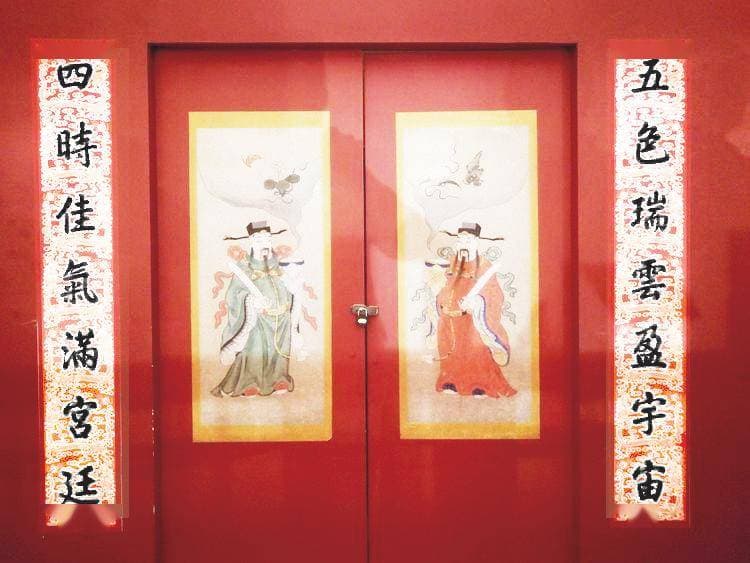 五色瑞雲盈宇宙
四時佳氣滿宮廷